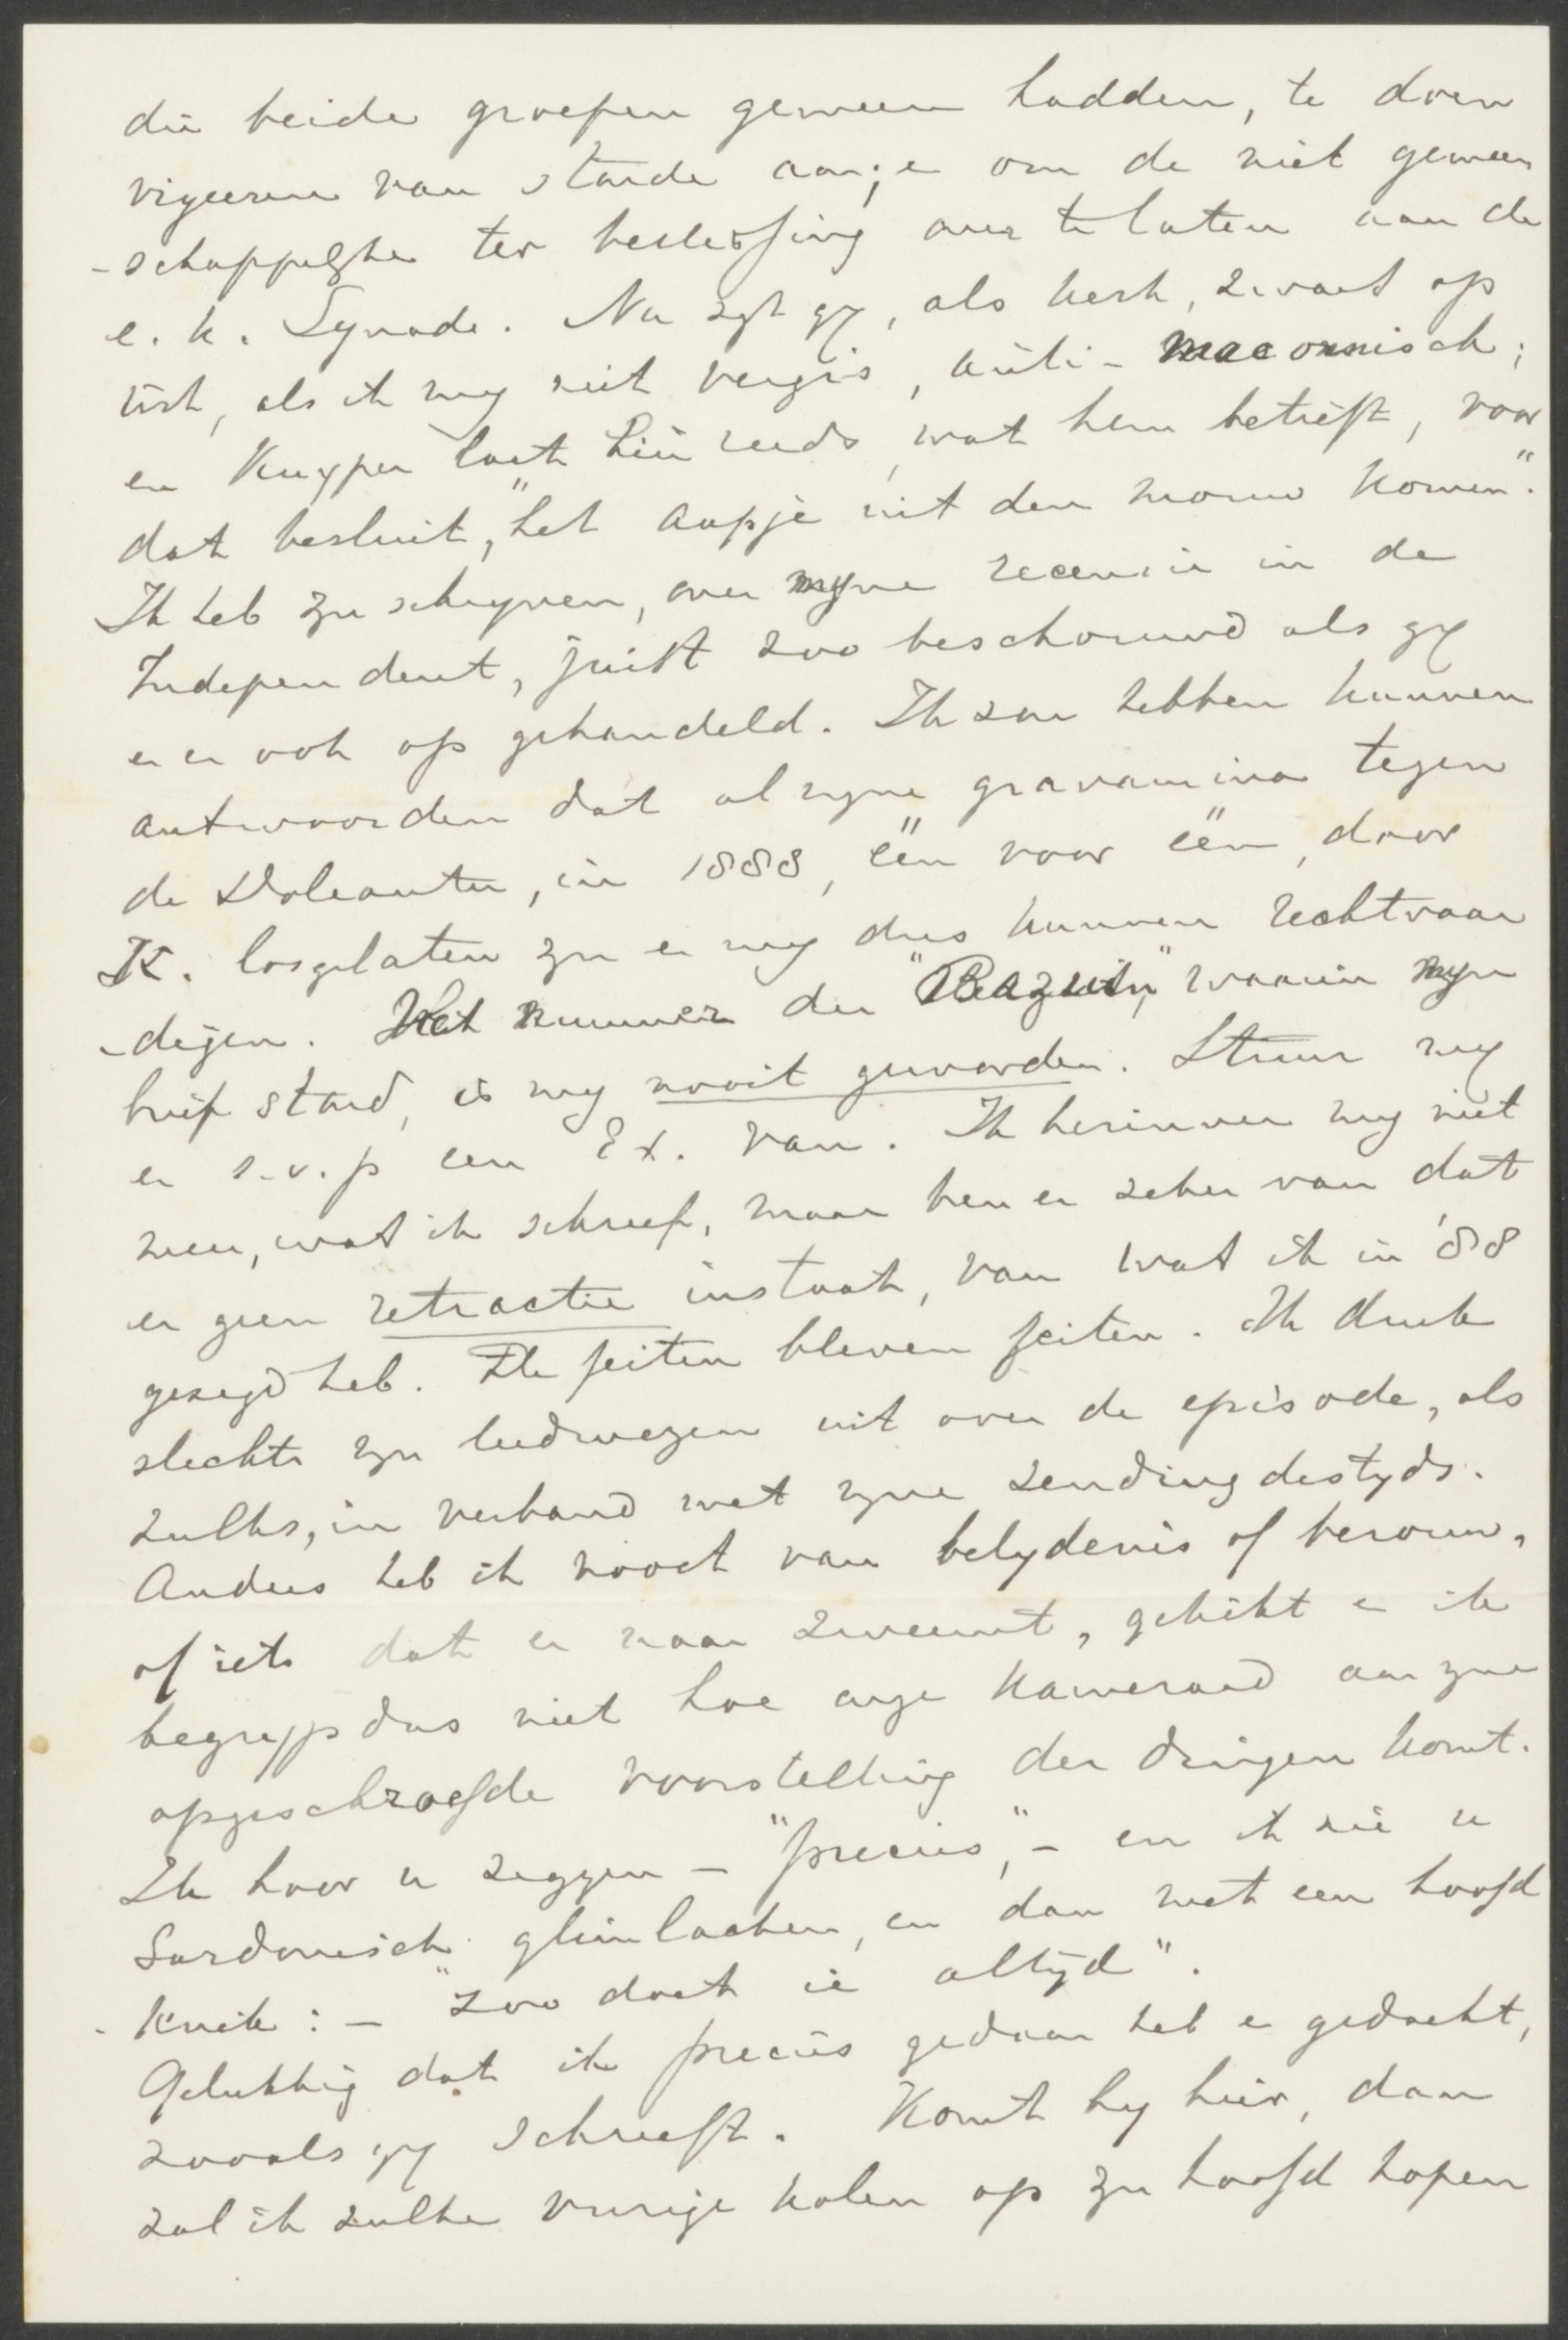 die beide groepen gemeen hadden, te doen
vigeeren van stonde aan; en om de niet gemeen
-schappelyke ter beslissing over te laten aan de
e. k. Synode. Nu zyt gy, als kerk, zwart op
wit, als ik my niet vergis, anti-maconnisch;
en Kuyper laat hier reeds, wat hem betreft, voor
dat besluit, "het aapje uit den mouw komen".
Ik heb zyn schryven, over myne recensie in de
Independent, juist zoo beschouwd als gy
en er ook op gehandeld. Ik zou hebben kunnen
antwoorden dat al myne gravamina tegen
de Doleantie, in 1888, één voor één, door
K. losgelaten zyn en my dus kunnen rechtvaar
-digen. Het nummer der "Bazuin", waarin myn
brief stond, is my nooit geworden. Stuur my
er s.v.p een Ex. van. Ik herinner my niet
meer, wat ik schreef, maar ben er zeker van dat
er geen retractie instaat, van wat ik in '88
gezegd heb. De feiten bleven feiten. Ik druk
slechts myn leedwezen uit over de episode, als
zulks, in verband met myne zending destyds.
Anders heb ik nooit van belydenis of berouw,
of iets dat er naar zweemt, gekikt en ik
begryp dus niet hoe onze kameraad aan zyne
opgeschroefde voorstelling der dingen komt.
Ik hoor u zeggen - "precies", - en ik zie u
Sardonisch glimlachen, en dan met een hoofd
-knik: - "zoo doet ie altyd".
Gelukkig dat ik precies gedaan heb en gedacht,
zooals gy schreeft. Komt hy hier, dan
zal ik zulke vurige kolen op zyn hoofd hopen